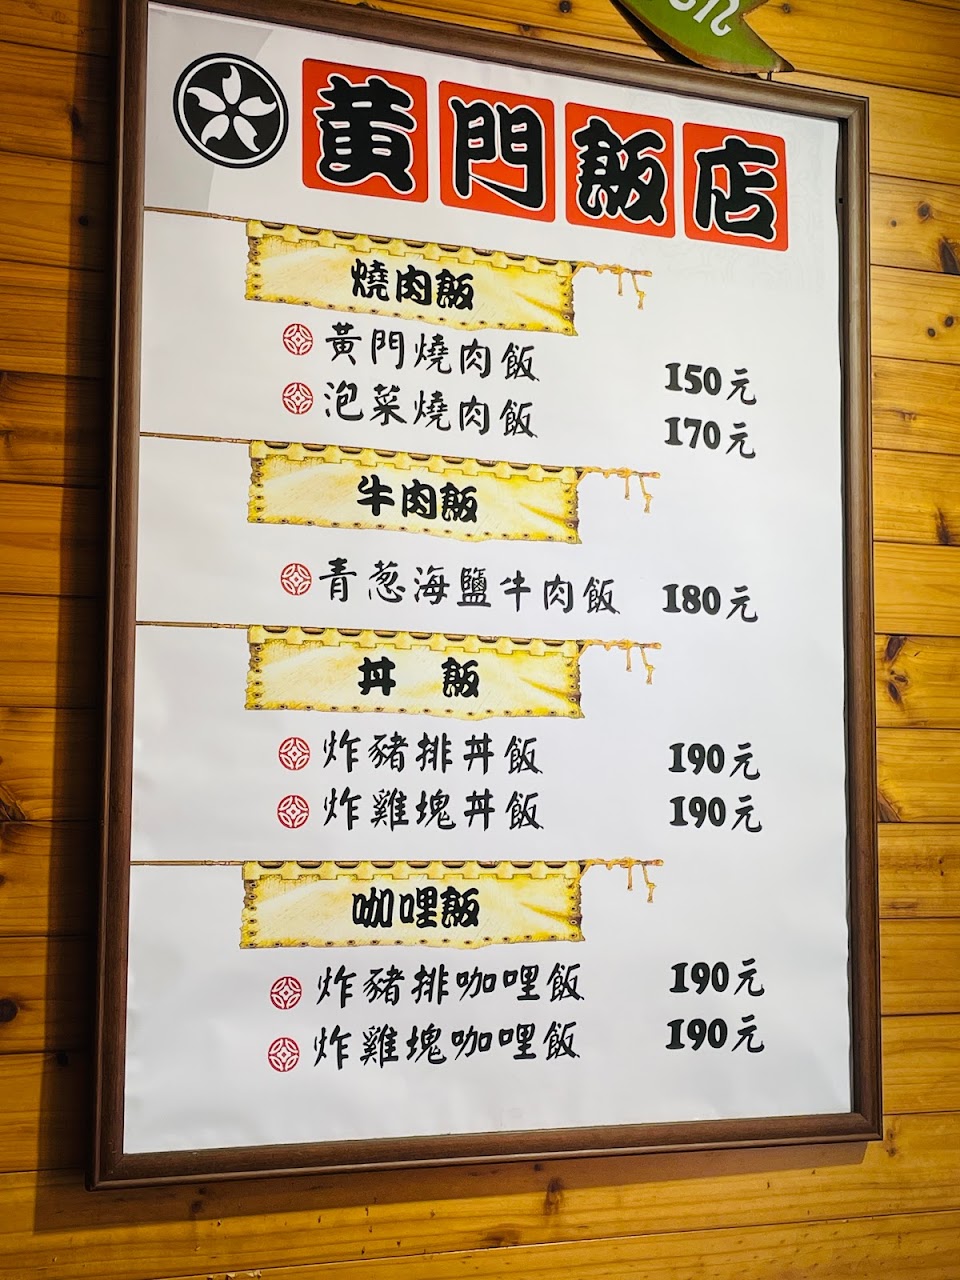 黃門飯店
燒肉飯
黃門燒肉飯 150元
泡菜燒肉飯 170元
牛肉飯
青葱海鹽牛肉飯 180元
丼 飯
炸豬排丼飯 190元
炸雞塊丼飯 190元
咖哩飯
炸豬排咖哩飯 190元
炸雞塊咖哩飯 190元